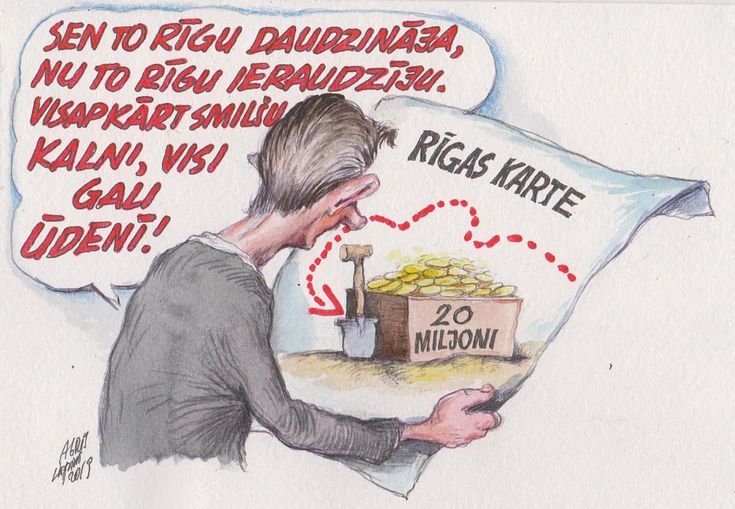 SEN TO RĪGU DAUDZINĀJA,
NU TO RĪGU IERAUDZĪJU.
VISAPKĀRT SMILŠU
KALNI, VISI
GALI
ŪDENĪ!
RĪGAS KARTE
20
MILJONI
2019